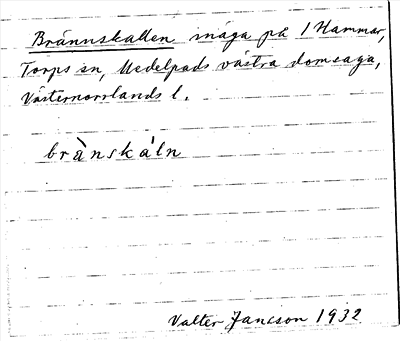 Brännskallen inäga på 1 Hammar,
Torps sn, Medelpads västra domsaga,
Västernorrlands l.
brànskáln
Valter Jansson 1932